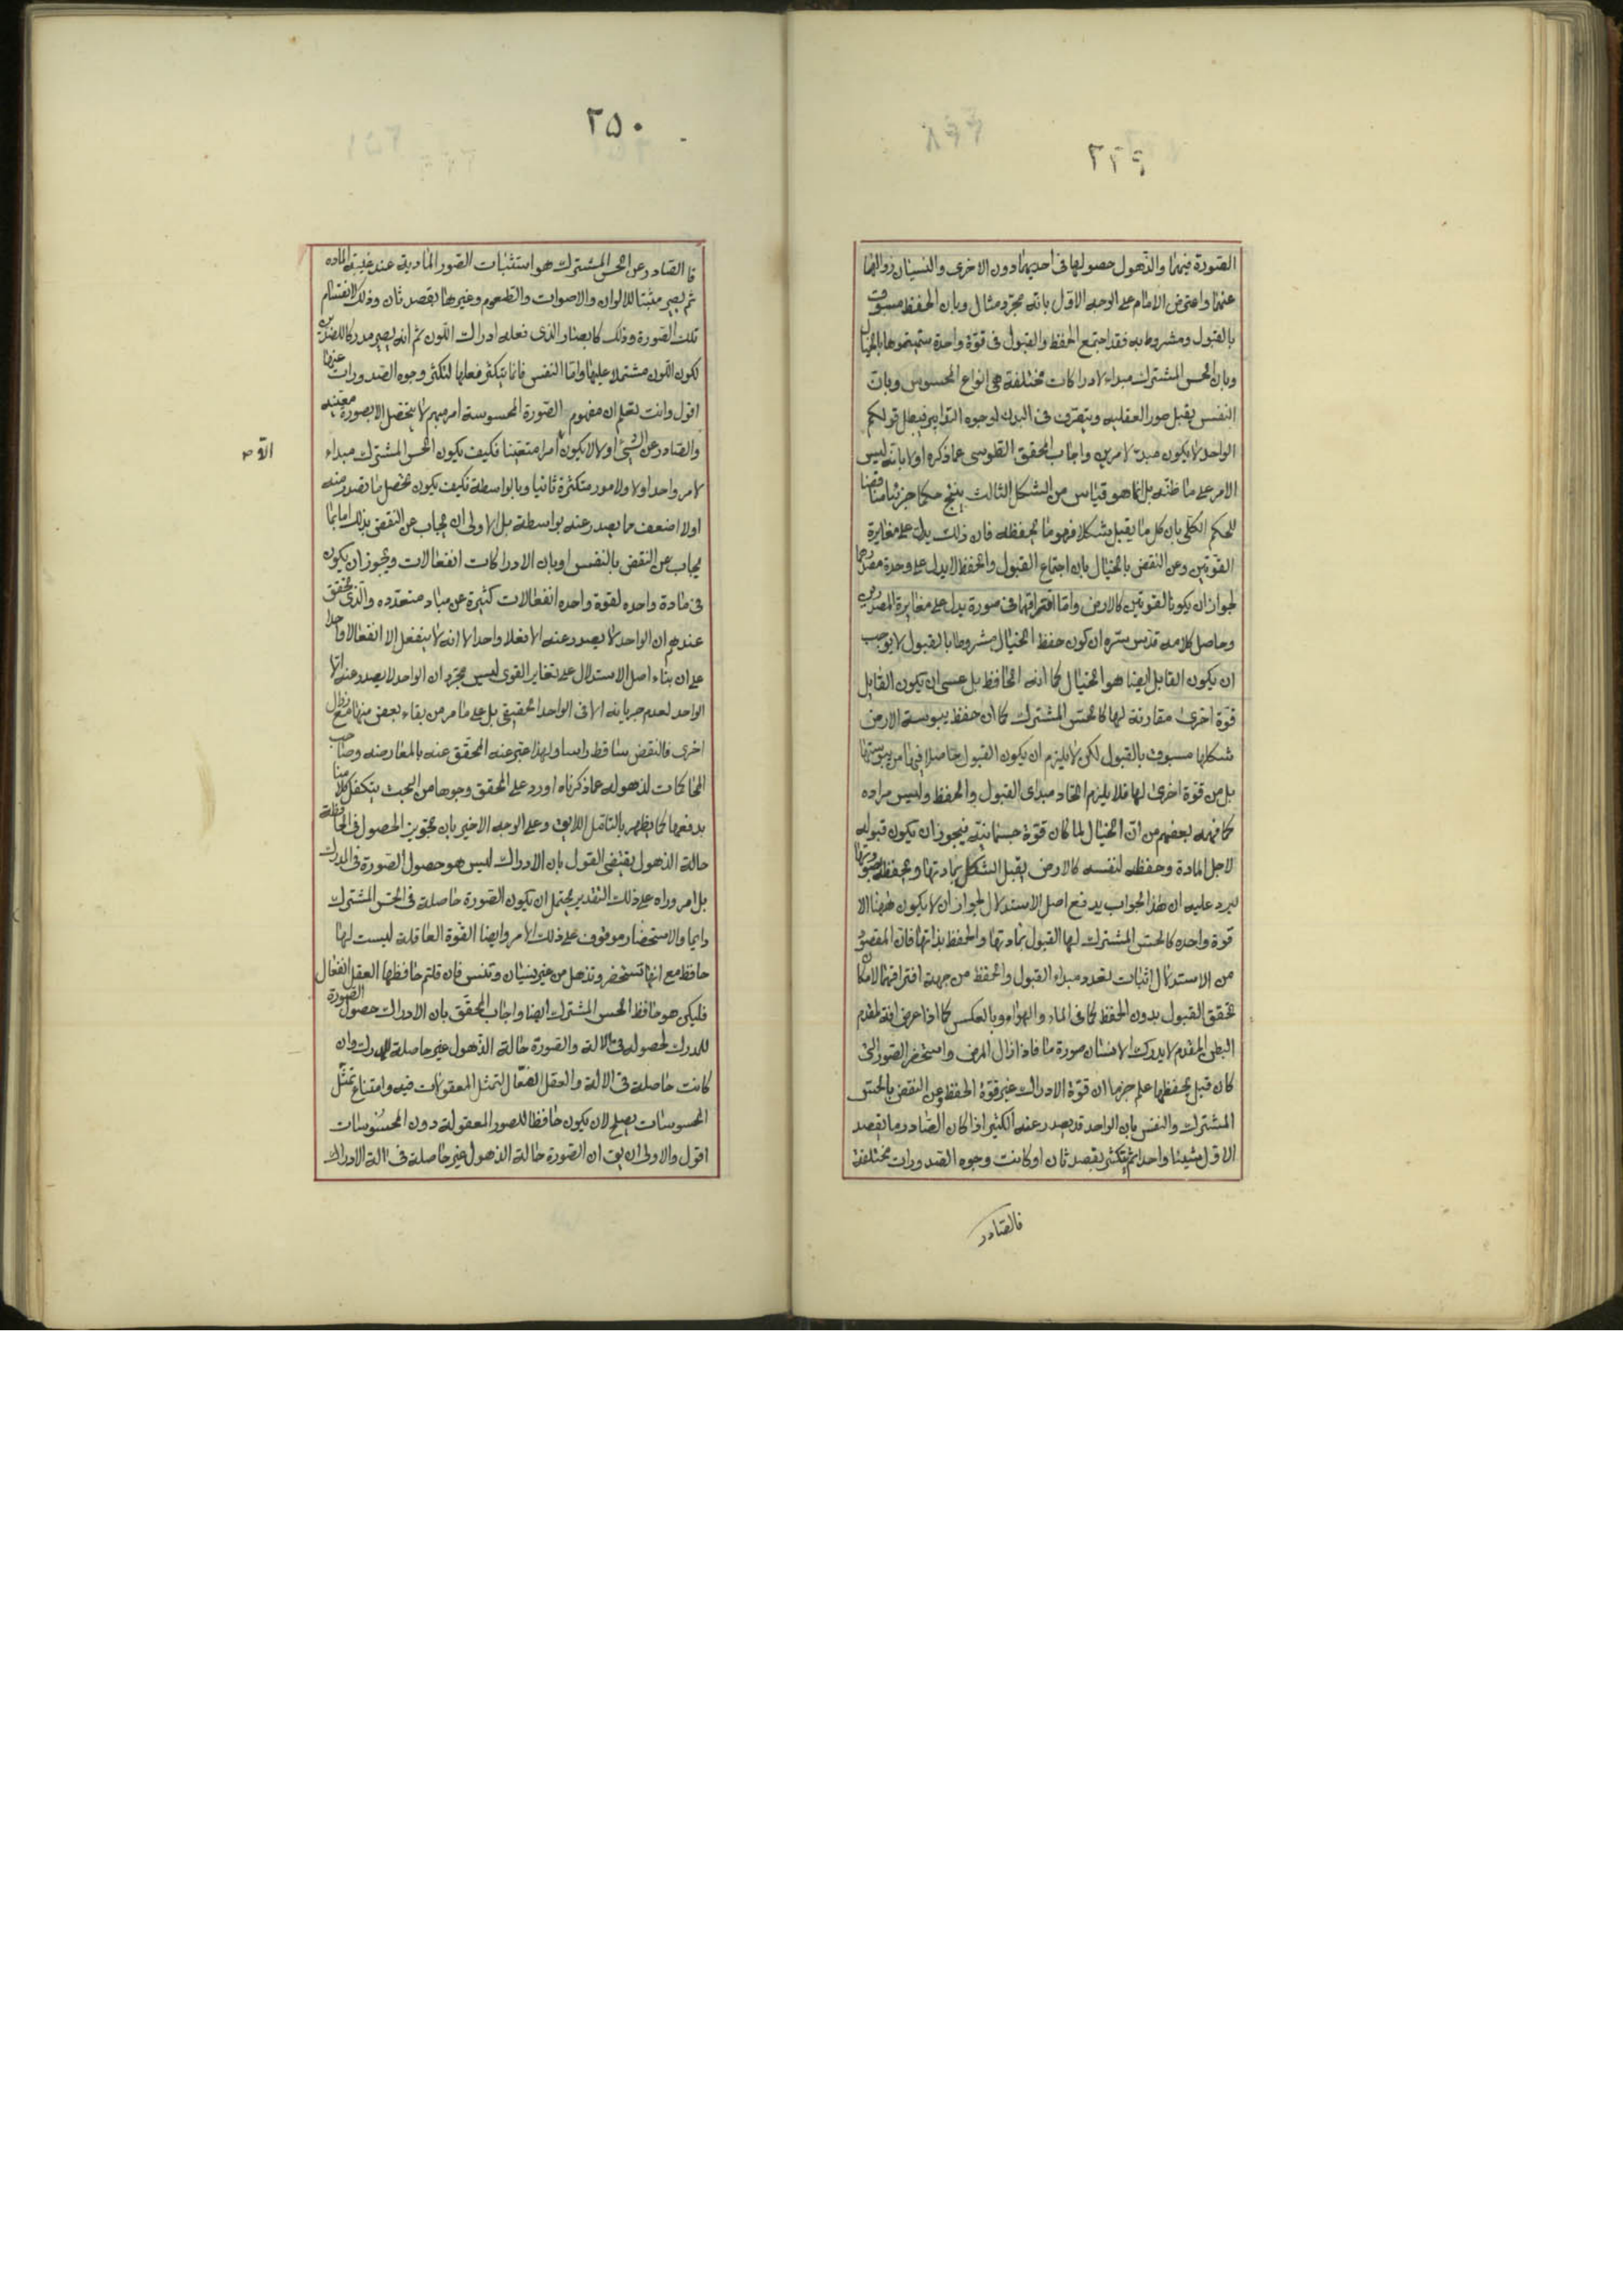 ٢٤٩
الصورة فيهما والذهول حصولها في احديهما دون الاخرى والنسيان زوالها
عنهما واعترض الامام على الوجه الاول بانه مجرد مثال وبان الحفظ مسبوق
بالقبول ومشروط به فقد اجتمع الحفظ والقبول في قوة واحدة سميتموها بالخيال
وبان الحس المشترك مبداء لادراكات مختلفة هي انواع المحسوس وبان
النفس يقبل صور العقلية ويتصرف في البدن لوجوه التدابير فيبطل قولكم
الواحد لا يكون مبدء لامرين واجاب المحقق الطوسى عما ذكره اولا بانه ليس
الامر على ما ظنه بل انما هو قياس من الشكل الثالث ينتج حكما جزئيا مناقضا
للحكم الكلى بان كل ما يقبل شكلا فهو ما يحفظه فان ذلك يدل على مغايرة
القوتين وعن النقض بالخيال بان اجتماع القبول والحفظ لا يدل على وحدة مصدرهما
لجواز ان يكونا لقوتين كالارض واما افتراقهما في صورة يدل على مغايرة المصدرين
وحاصل كلامه قدس سره ان كون حفظ الخيال مشروطا بالقبول لا يوجب
ان يكون القابل ايضا هو الخيال كما انه الحافظ بل عسى ان يكون القابل
قوة اخرى مقارنة لها كالحس المشترك كما ان حفظ يبوسة الارض
شكلها مسبوق بالقبول لكن لا يلزم ان يكون القبول حاصلا فيها من يبوستها
بل من قوة اخرى لها فلا يلزم اتحاد مبداى القبول والحفظ وليس مراده
كما فهمه بعضهم من ان الخيال لما كان قوة جسمانية فيجوز ان يكون قبوله
لاجل المادة وحفظه لنفسه كالارض يقبل الشكل بمادتها ويحفظه بصورتها
ليرد عليه ان هذا الجواب يدفع اصل الاستدلال لجواز ان لا يكون ههنا الا
قوة واحدة كالحس المشترك لها القبول بمادتها والحفظ بذاتها فان المقصود
من الاستدلال اثبات تعدد مبداء القبول والحفظ من جهة افتراقهما لامكان
تحقق القبول بدون الحفظ كما في الماء والهواء وبالعكس كما اذا عرض افة لمقدم
البطن المقدم لا يدرك الانسان صورة ما فاذا زال المرض واستحضر الصور التى
كان قبل يحفظها علم جزما ان قوة الادراك غير قوة الحفظ وعن النقض بالحس
المشترك والنفس بان الواحد قد يصدر عنه الكثير اذا كان الصادر ما يقصد
الاول شيئا واحدا ثم يتكثر بقصد ثان او كانت وجوه الصدورات مختلفة
فالصادر
٢٥٠
فالصادر عن الحس المشترك هو استثبات الصور المادية عند غيبة المادة
ثم يصير مثبتا للالوان والاصوات والطعوم وغيرها بقصد ثان وذلك لانقسام
تلك الصورة وذلك كابصار الذى فعله ادراك اللون ثم انه يصير مدركا للضدين
لكون اللون مشتملا عليهما واما النفس فانما يتكثر فعلها لتكثر وجوه الصدورات عنها
اقول وانت تعلم ان مفهوم الصورة المحسوسة امر مبهم لا يتحصل الا بصورة معينة
والصادر عن الشئ اولا لا يكون الا امرا متعينا فكيف يكون الحس المشترك مبداء
لامر واحد اولا ولامور متكثرة ثانيا وبالواسطة فكيف يكون تحصل ما يصدر منه
اولا اضعف مما يصدر عنه بواسطة بل الاولى ان يجاب عن النقض بذلك اما بما
يجاب عن النقض بالنفس او بان الادراكات انفعالات ويجوز ان يكون
في مادة واحده لقوة واحده انفعالات كثيرة عن مباد متعدده والذى تحقق
عندهم ان الواحد لا يصدر عنه الا فعلا واحدا لا انه لا ينفعل الا انفعالا واحدا
على ان بناء اصل الاستدلال على تغاير القوى ليس مجرد ان الواحد لا يصدر عنه الا
الواحد لعدم جريانه الا في الواحد الحقيقى بل على ما مر من بقاء بعض منها مع زوال
اخرى فالنقض ساقط راسا ولهذا عبر عنه المحقق عنه بالمعارضة وصاحب
المحاكمات لذهوله عما ذكرناه اورد على المحقق وجوها من البحث يتكفل كلامنا
بدفعها كما يظهر بالتامل اللايق وعلى الوجه الاخير بان تجويز الحصول في الحافظة
حالة الذهول يقتضى القول بان الادراك ليس هو حصول الصورة في المدرك
بل امر وراه على ذلك التقدير يحتمل ان يكون الصورة حاصلة في الحس المشترك
دايما والاستحضار موقوف على ذلك الامر وايضا القوة العاقلة ليست لها
حافظ مع انها تستحضر وتذهل من غير نسيان وتنس فان قلتم حافظها العقل الفعال
فليكن هو حافظ الحس المشترك ايضا واجاب المحقق بان الادراك حصول الصورة
للمدرك لحصوله في الالة والصورة حالة الذهول غير حاصلة للمدرك وان
كانت حاصلة في الالة والعقل الفعال لتمثل المعقولات فيه وامتناع تمثل
المحسوسات يصلح لان يكون حافظا للصور المعقولة دون المحسوسات
اقول والاولى ان يق ان الصورة حالة الذهول غير حاصلة في الة الادراك